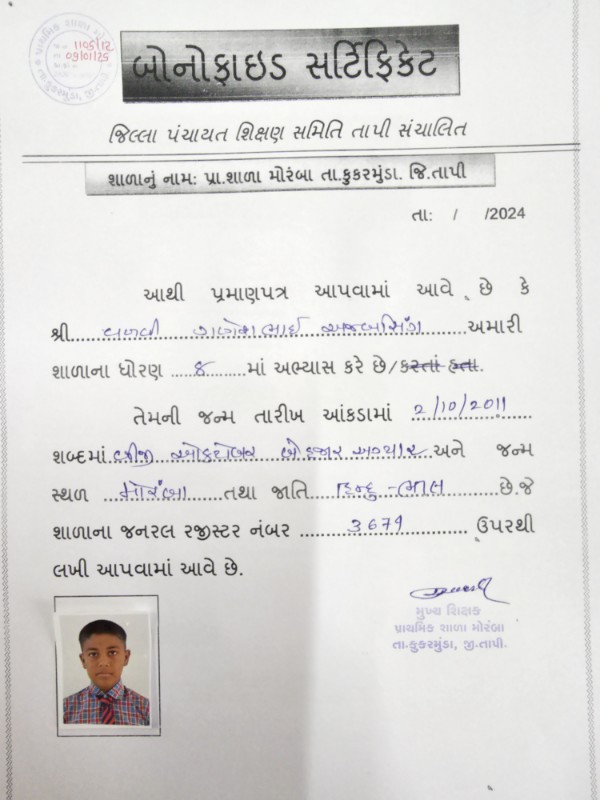 પ્રાથમિક શાળા મોરંબા
1105/12
09/01/25
તા.કુકરમુંડા, જી.તાપી
બોનોફાઇડ સર્ટિફિકેટ
જિલ્લા પંચાયત શિક્ષણ સમિતિ તાપી સંચાલિત
શાળાનું નામ: પ્રા.શાળા મોરંબા તા.કુકરમુંડા. જિ.તાપી
તા: / /2024
આથી પ્રમાણપત્ર આપવામાં આવે છે કે
શ્રી વળવી ગણેશભાઈ અજબસિંગ અમારી
શાળાના ધોરણ ૮ માં અભ્યાસ કરે છે/કરતાં હતા.
તેમની જન્મ તારીખ આંકડામાં 2/10/2011
શબ્દમાં બીજી ઓકટોબર બે હજાર અગ્યાર અને જન્મ
સ્થળ મોરંબા તથા જાતિ હિન્દુ-ભીલ છે.જે
શાળાના જનરલ રજીસ્ટર નંબર 3679 ઉપરથી
લખી આપવામાં આવે છે.
મુખ્ય શિક્ષક
પ્રાથમિક શાળા મોરંબા
તા.કુકરમુંડા, જી.તાપી.